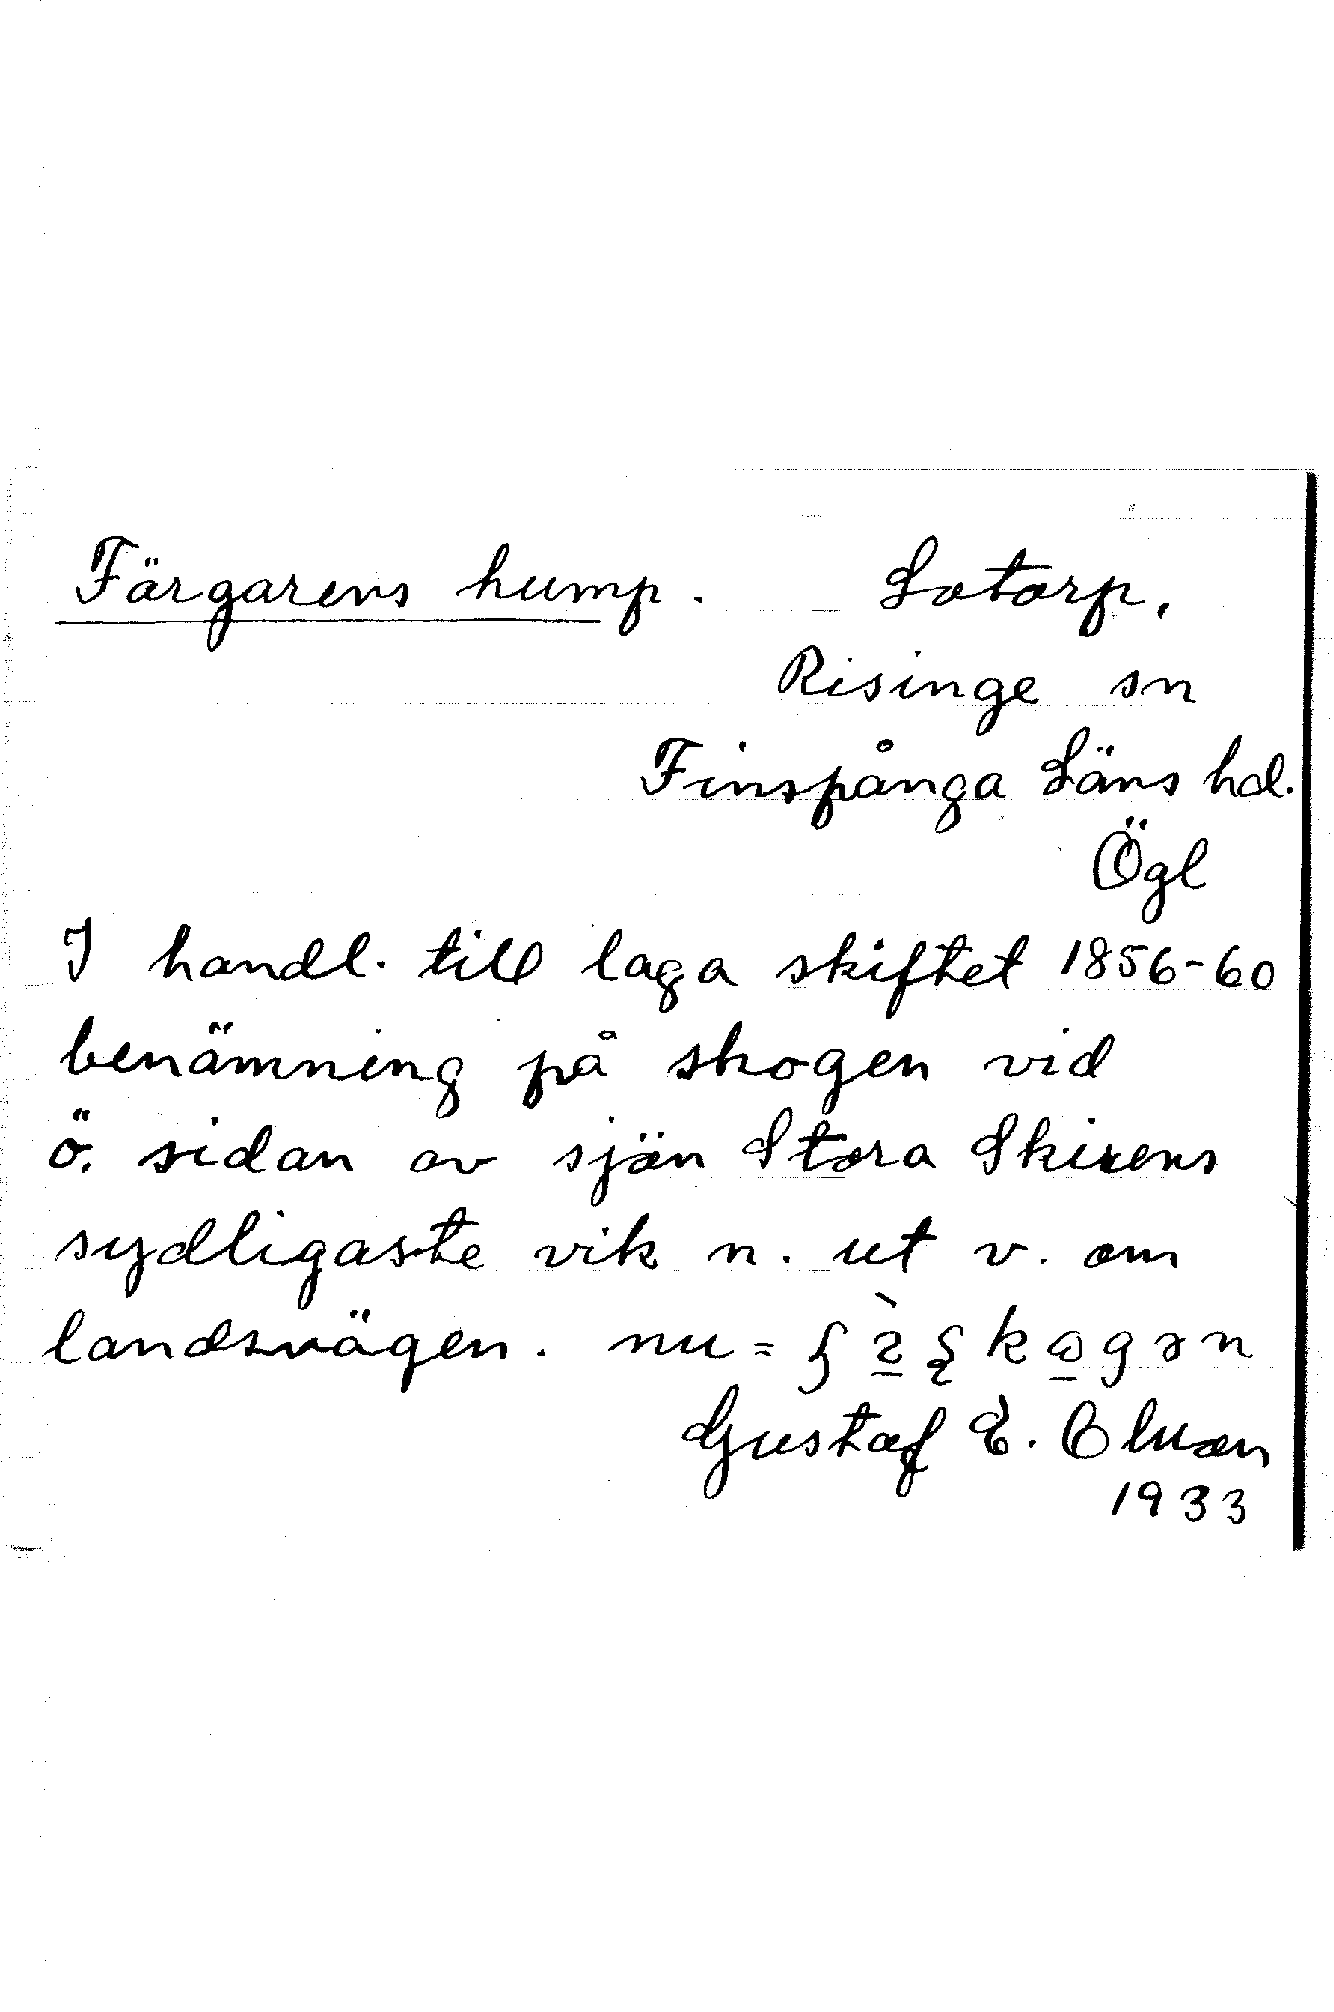 Färgarens hump. Lotorp,
Risinge sn
Finspånga Läns hd.
Ögl
I handl. till laga skiftet 1856-60
benämning på skogen vid
ö. sidan av sjön Stora Skirens
sydligaste vik n. ut v. om
landsvägen. nu =
Gustaf E.
1933